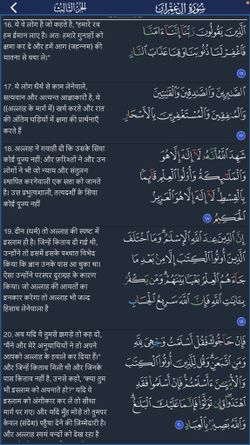 الجزء الثالث
سُورَةُ آلِ عِمْرَان
16. ये वे लोग है जो कहते है, "हमारे रब
हम ईमान लाए है। अतः हमारे गुनाहों को
क्षमा कर दे और हमें आग (जहन्नम) की
यातना से बचा ले।"
ٱلَّذِينَ يَقُولُونَ رَبَّنَآ إِنَّنَآ ءَامَنَّا
فَٱغْفِرْ لَنَا ذُنُوبَنَا وَقِنَا عَذَابَ ٱلنَّارِ
١٦
17. ये लोग धैर्य से काम लेनेवाले,
सत्यवान और अत्यन्त आज्ञाकारी है, ये
((अल्लाह के मार्ग में) खर्च करते और रात
की अंतिम घड़ियों में क्षमा की प्रार्थनाएँ
करते हैं
ٱلصَّٰبِرِينَ وَٱلصَّٰدِقِينَ وَٱلْقَٰنِتِينَ
وَٱلْمُنفِقِينَ وَٱلْمُسْتَغْفِرِينَ بِٱلْأَسْحَارِ
١٧
18. अल्लाह ने गवाही दी कि उसके सिवा
कोई पूज्य नहीं; और फ़रिश्तों ने और उन
लोगों ने भी जो न्याय और संतुलन
स्थापित करनेवाली एक सत्ता को जानते
है। उस प्रभुत्वशाली, तत्वदर्शी के सिवा
कोई पूज्य नहीं
شَهِدَ ٱللَّهُ أَنَّهُۥ لَآ إِلَٰهَ إِلَّا هُوَ
وَٱلْمَلَٰٓئِكَةُ وَأُو۟لُوا۟ ٱلْعِلْمِ قَآئِمًۢا
بِٱلْقِسْطِ لَآ إِلَٰهَ إِلَّا هُوَ ٱلْعَزِيزُ
ٱلْحَكِيمُ
١٨
19. दीन (धर्म) तो अल्लाह की स्पष्ट में
इस्लाम ही है। जिन्हें किताब दी गई थी,
उन्होंने तो इसमें इसके पश्चात विभेद
किया कि ज्ञान उनके पास आ चुका था।
ऐसा उन्होंने परस्पर दुराग्रह के कारण
किया। जो अल्लाह की आयतों का
इनकार करेगा तो अल्लाह भी जल्द
हिसाब लेनेवाला है
إِنَّ ٱلدِّينَ عِندَ ٱللَّهِ ٱلْإِسْلَٰمُ وَمَا ٱخْتَلَفَ
ٱلَّذِينَ أُوتُوا۟ ٱلْكِتَٰبَ إِلَّا مِنۢ بَعْدِ مَا
جَآءَهُمُ ٱلْعِلْمُ بَغْيًۢا بَيْنَهُمْ وَمَن يَكْفُرْ
بِـَٔايَٰتِ ٱللَّهِ فَإِنَّ ٱللَّهَ سَرِيعُ ٱلْحِسَابِ
١٩
20. अब यदि वे तुमसे झगड़े तो कह दो,
"मैंने और मेरे अनुयायियों ने तो अपने
आपको अल्लाह के हवाले कर दिया हैं।"
और जिन्हें किताब मिली थी और जिनके
पास किताब नहीं है, उनसे कहो, "क्या तुम
भी इस्लाम को अपनाते हो?" यदि वे
इस्लाम को अंगीकार कर लें तो सीधा
मार्ग पर गए। और यदि मुँह मोड़े तो तुमपर
केवल (संदेश) पहुँचा देने की ज़िम्मेदारी है।
और अल्लाह स्वयं बन्दों को देख रहा है
فَإِنْ حَآجُّوكَ فَقُلْ أَسْلَمْتُ وَجْهِىَ لِلَّهِ
وَمَنِ ٱتَّبَعَنِ وَقُل لِّلَّذِينَ أُوتُوا۟ ٱلْكِتَٰبَ
وَٱلْأُمِّيِّـۧنَ ءَأَسْلَمْتُمْ فَإِنْ أَسْلَمُوا۟ فَقَدِ
ٱهْتَدَوا۟ وَّإِن تَوَلَّوْا۟ فَإِنَّمَا عَلَيْكَ ٱلْبَلَٰغُ
وَٱللَّهُ بَصِيرٌۢ بِٱلْعِبَادِ